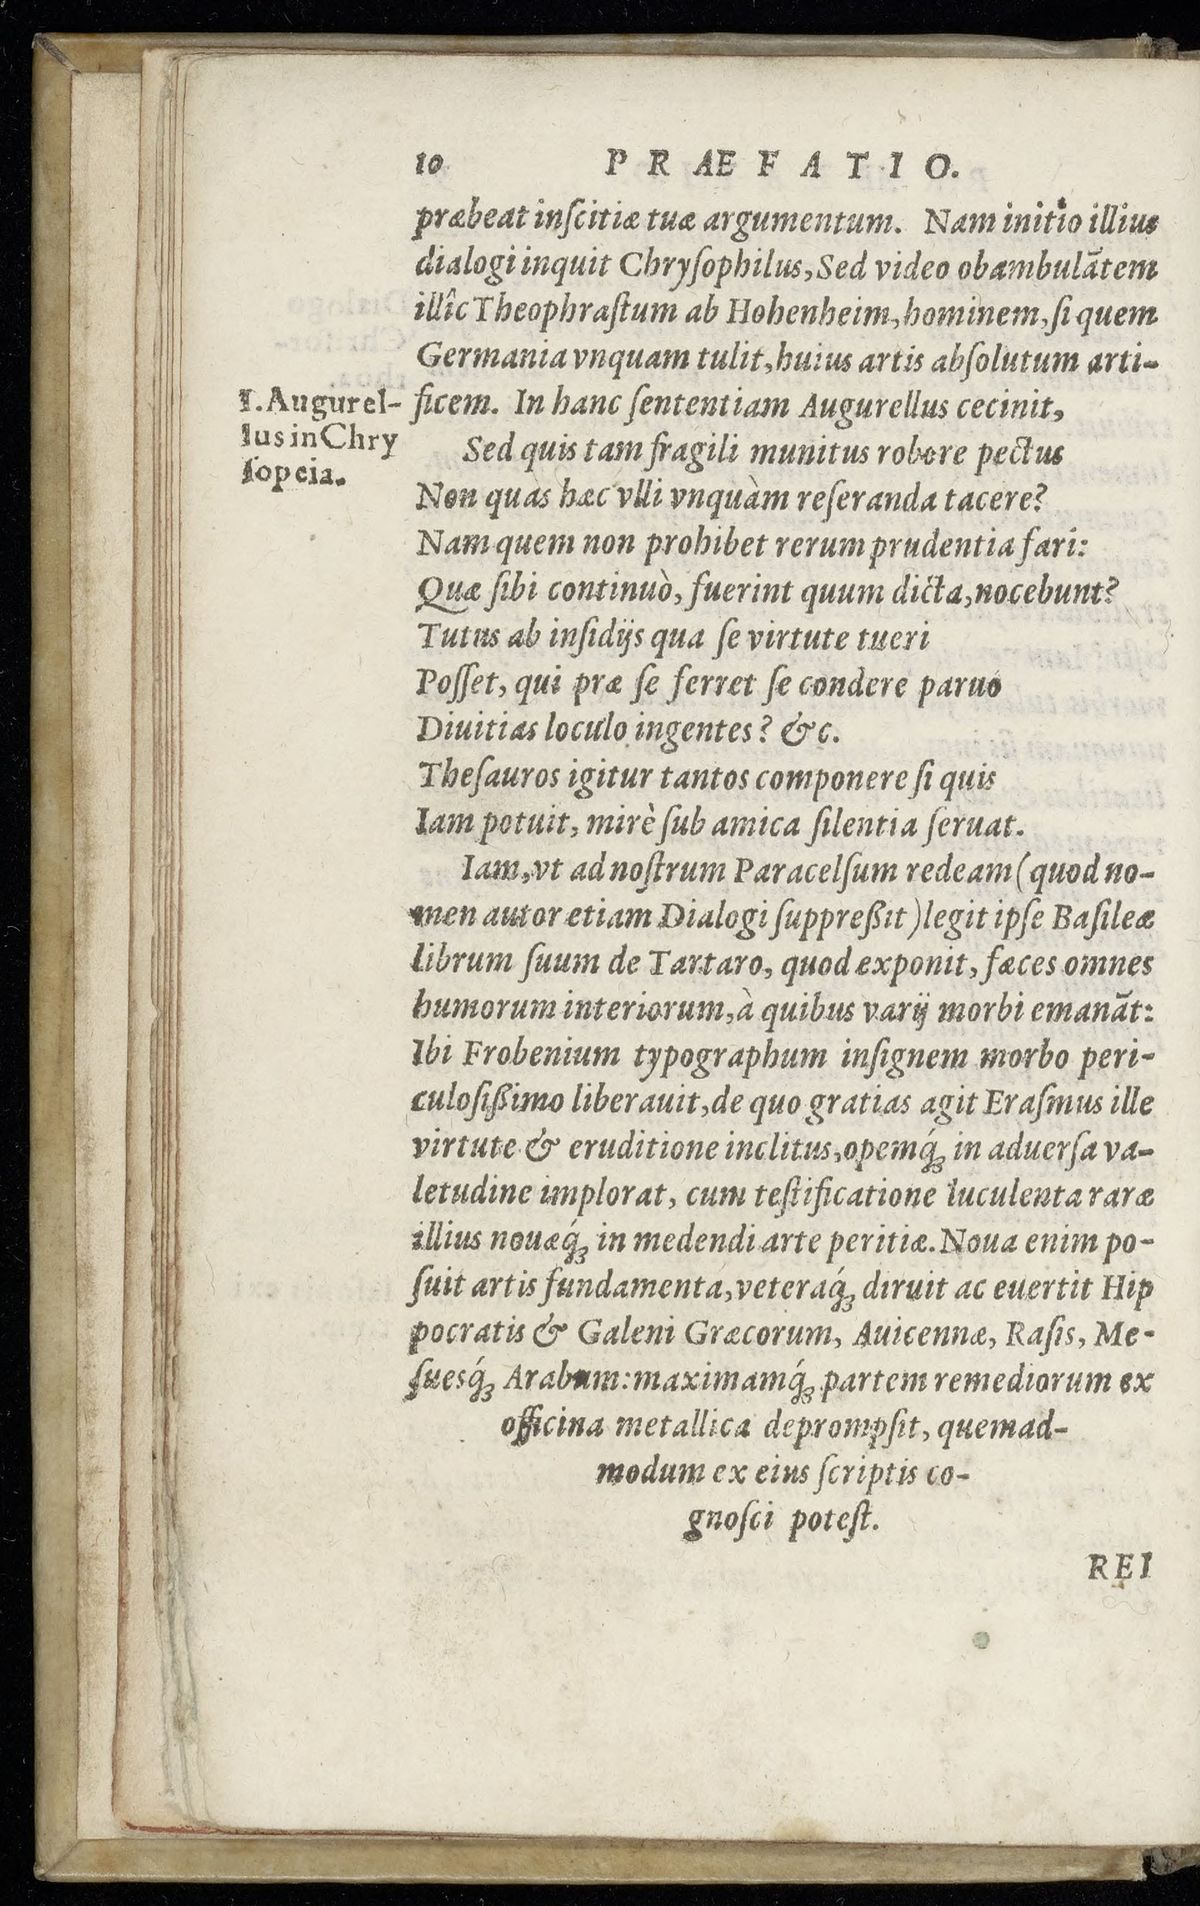 10 PRÆFATIO.
præbeat inſcitiæ tuæ argumentum. Nam initio illius
dialogi inquit Chryſophilus, Sed video obambulãtem
illîc Theophraſtum ab Hohenheim, hominem, ſi quem
Germania vnquam tulit, huius artis abſolutum arti-
ficem. In hanc ſententiam Augurellus cecinit,
I. Augurel-
lus in Chry
ſopeia.
Sed quis tam fragili munitus robore pectus
Non quas hæc vlli vnquàm reſeranda tacere?
Nam quem non prohibet rerum prudentia fari:
Quæ ſibi continuò, fuerint quum dicta, nocebunt?
Tutus ab inſidijs qua ſe virtute tueri
Poſſet, qui præ ſe ferret ſe condere paruo
Diuitias loculo ingentes? &c.
Theſauros igitur tantos componere ſi quis
Iam potuit, mirè ſub amica ſilentia ſeruat.
Iam, vt ad noſtrum Paracelſum redeam (quod no-
men autor etiam Dialogi ſuppreßit) legit ipſe Baſileæ
librum ſuum de Tartaro, quod exponit, fæces omnes
humorum interiorum, à quibus varij morbi emanãt:
Ibi Frobenium typographum inſignem morbo peri-
culoſißimo liberauit, de quo gratias agit Eraſmus ille
virtute & eruditione inclitus, opemq́; in aduerſa va-
letudine implorat, cum teſtificatione luculenta raræ
illius nouæq́; in medendi arte peritiæ. Noua enim po-
ſuit artis fundamenta, veteraq́; diruit ac euertit Hip
pocratis & Galeni Græcorum, Auicennæ, Raſis, Me-
ſuesq́; Arabum: maximamq́; partem remediorum ex
officina metallica deprompſit, quemad-
modum ex eius ſcriptis co-
gnoſci poteſt.
REI